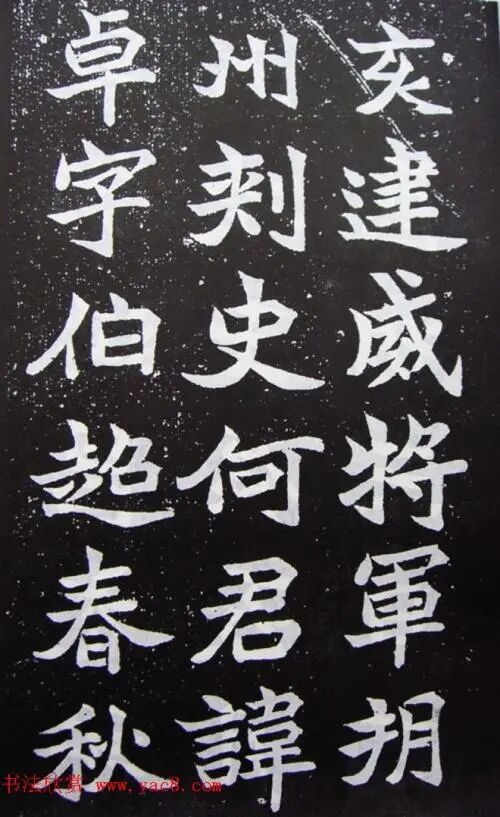 亥建威將軍朔
州刾史何君諱
卓字伯超春秋
书法欣赏 www.yac8.com